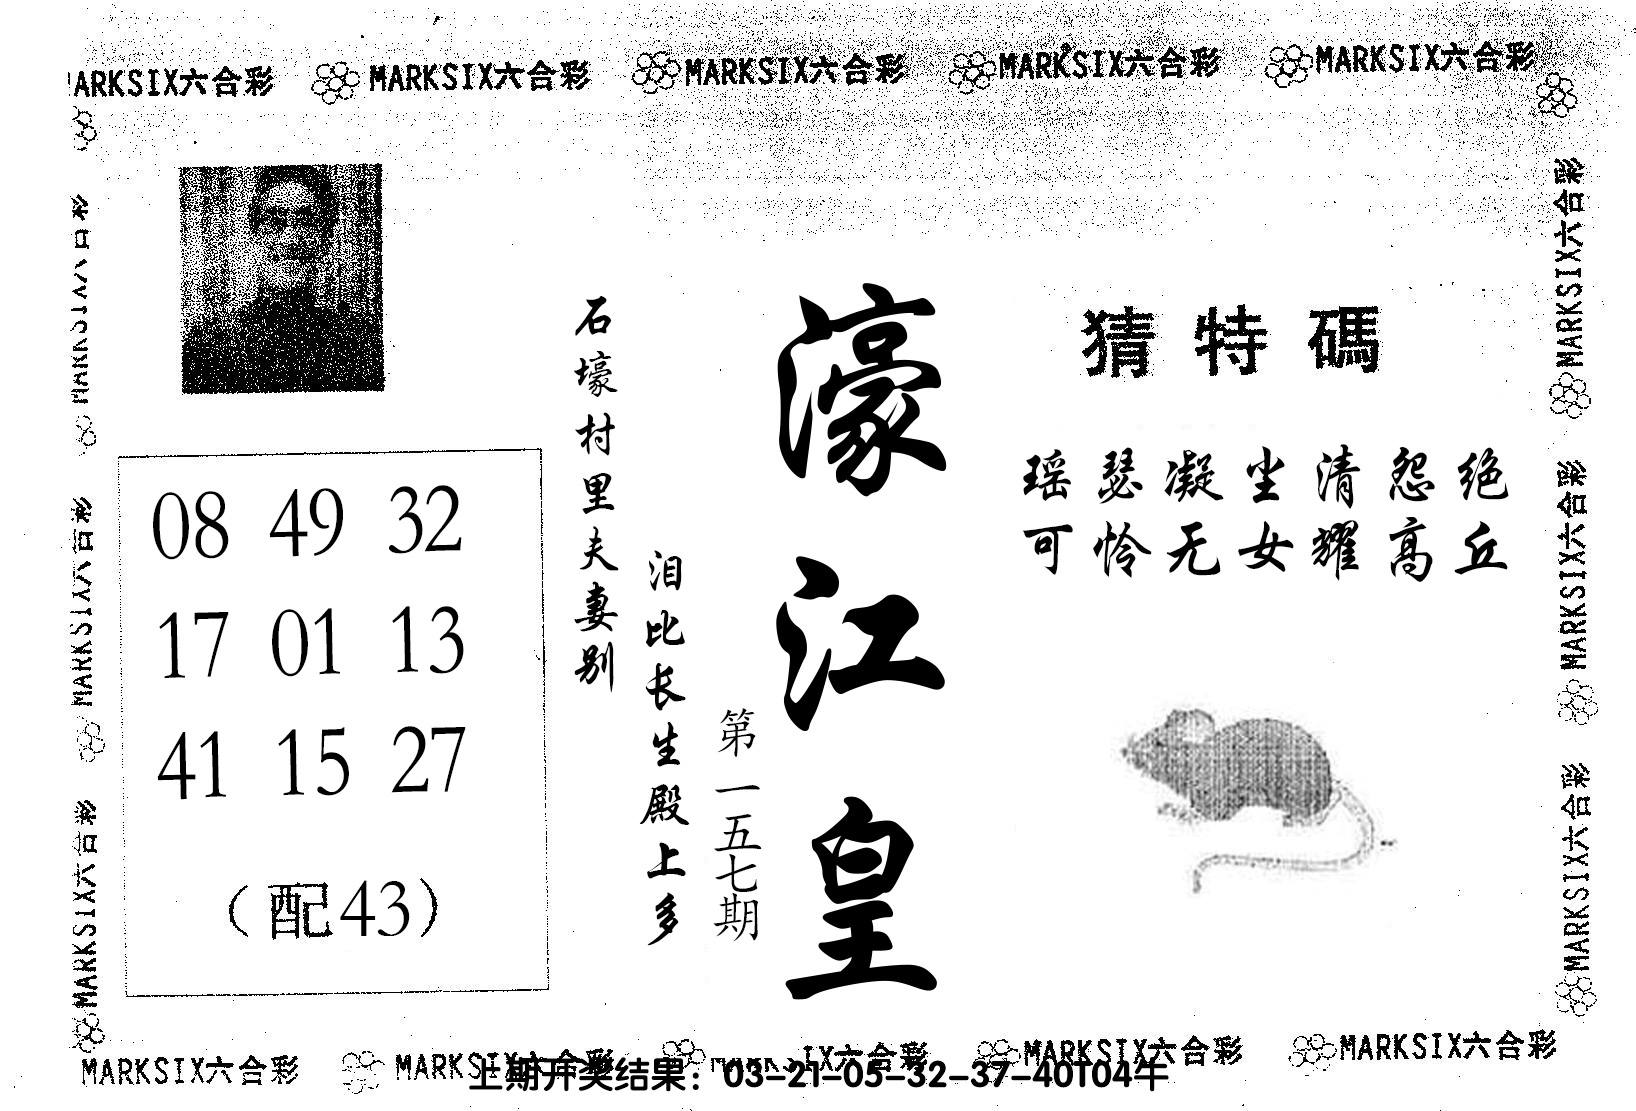 MARKSIX六合彩 MARKSIX六合彩 MARKSIX六合彩 MARKSIX六合彩 MARKSIX六合彩
猜特碼
瑶瑟凝尘清怨绝
可怜无女耀高丘
濠江皇
第一五七期
石壕村里夫妻别
泪比长生殿上多
08 49 32
17 01 13
41 15 27
(配43)
MARKSIX六合彩
MARKSIX六合彩
MARKSIX六合彩
MARKSIX六合彩
MARKSIX六合彩
MARKSIX六合彩
MARKSIX六合彩 MARKSIX六合彩 MARKSIX六合彩 MARKSIX六合彩 MARKSIX六合彩
上期开奖结果：03-21-05-32-37-40T04牛